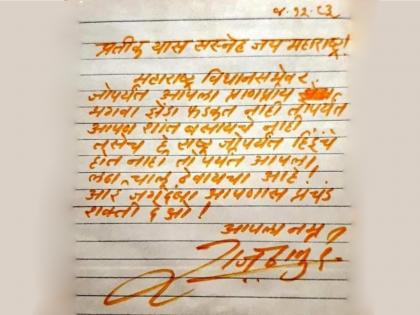 ४.१२.८३
प्रतीक यास सस्नेह जय महाराष्ट्र!
महाराष्ट्र विधानसभेवर
जोपर्यंत आपला प्राणप्रिय
भगवा झेंडा फडकत नाही तोपर्यंत
आपण शांत बसायचे नाही
तसेच हे राष्ट्र जोपर्यंत हिंदूंचे
होत नाही तोपर्यंत आपला
लढा चालू ठेवायचा आहे!
आई जगदंबा आपणास प्रचंड
शक्ती देओ!
आपला नम्र
राज ठाकरे